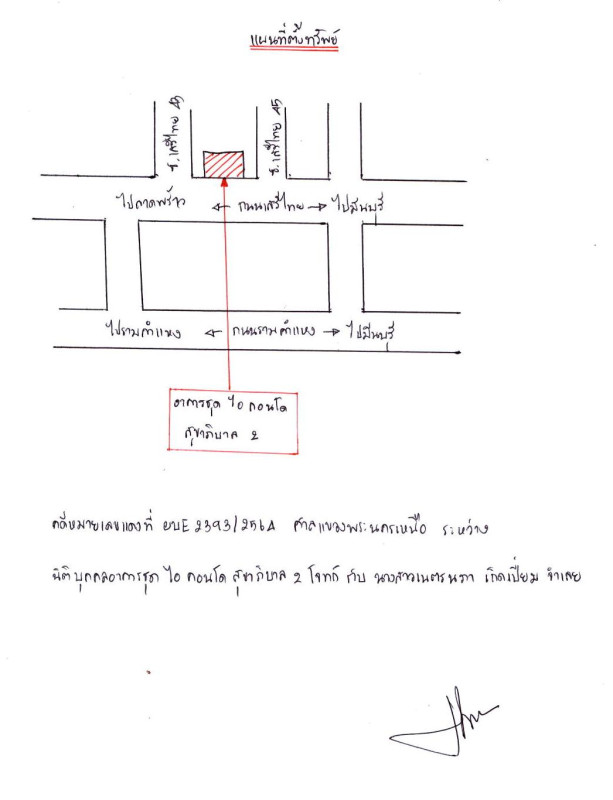 แผนที่ตั้งทรัพย์
ซ.เสรีไทย 43
ซ.เสรีไทย 45
ไปลาดพร้าว ← ถนนเสรีไทย → ไปมีนบุรี
ไปรามคำแหง ← ถนนรามคำแหง → ไปมีนบุรี
อาคารชุด ไอ คอนโด
สุขาภิบาล 2
คดีหมายเลขแดงที่ ผบE 2393/2564 ศาลแขวงพระนครเหนือ ระหว่าง
นิติบุคคลอาคารชุด ไอ คอนโด สุขาภิบาล 2 โจทก์ กับ นางสาวเนตรนภา เกิดเปี่ยม จำเลย